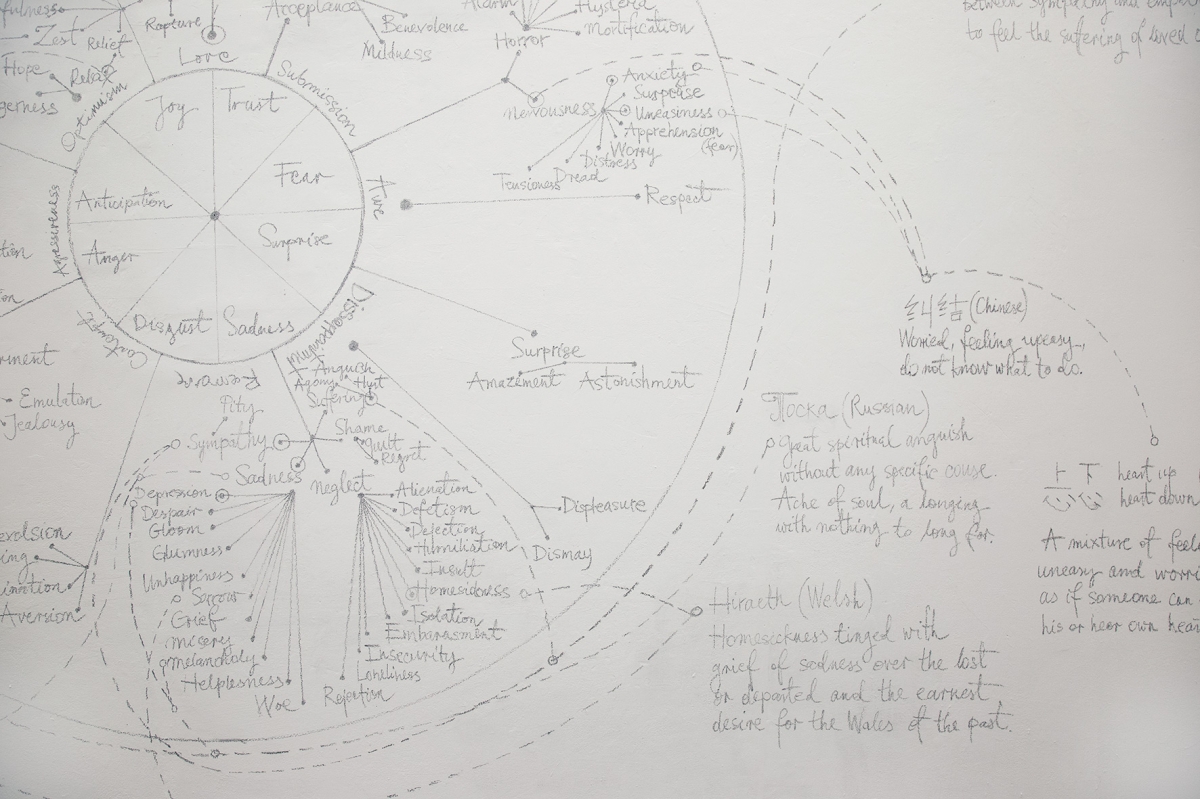 Zest
Relief
Rapture
Love
Acceptance
Benevolence
Madness
Horror
Mortification
between sympathy and
to feel the suffering of loved
Hope
Relax
Optimism
Submission
Joy
Trust
Fear
Surprise
Sadness
Disgust
Anger
Anticipation
Awe
Contempt
Remorse
Nervousness
Anxiety
Surprise
Uneasiness
Apprehension
(fear)
Worry
Distress
Dread
Tensioness
Respect
Surprise
Amazement
Astonishment
Anguish
Agony
Hurt
Suffering
Displeasure
Dismay
Emulation
Jealousy
Aversion
Pity
Sympathy
Shame
guilt
Regret
Sadness
neglect
Depression
Despair
Gloom
Glumness
Unhappiness
Sorrow
Grief
misery
melancholy
Helplesness
Woe
Alienation
Defetism
Dejection
Humiliation
Insult
Homesickness
Isolation
Embarasment
Insecurity
Loneliness
Rejection
(Chinese)
Worried, feeling uneasy,
do not know what to do.
Тоска (Russian)
Great spiritual anguish
without any specific cause.
Ache of soul, a longing
with nothing to long for.
Hiraeth (Welsh)
Homesickness tinged with
grief of sadness over the lost
or departed and the earnest
desire for the Wales of the past.
heart up
heart down
A mixture of
uneasy and
as if someone can
his or heer own